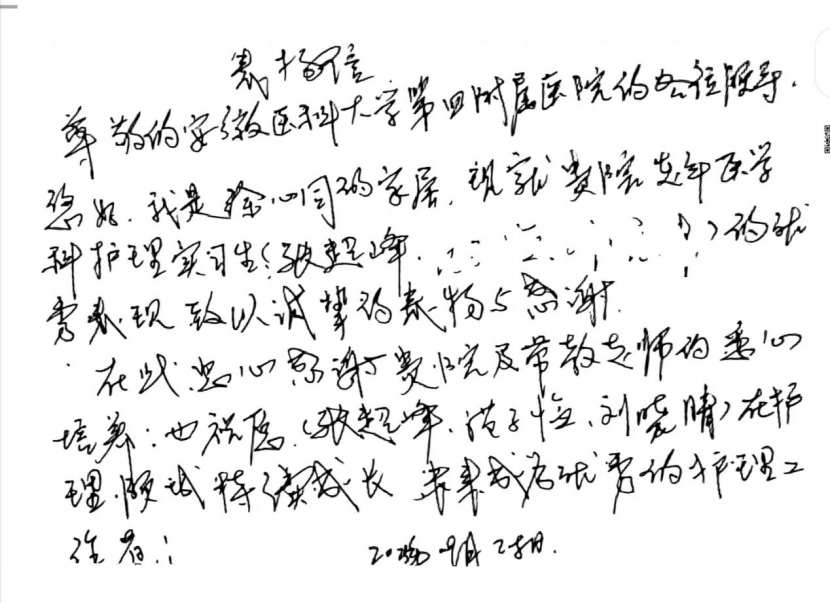 表扬信
尊敬的安徽医科大学第四附属医院的各位领导.
您好.我是徐心同的家属.现就贵院老年医学
科护理实习生(张超峰. )的优
秀表现致以诚挚的表扬与感谢.
在此忠心感谢贵院及带教老师的悉心
培养.也祝愿(张超峰. 刘晓晴)在护
理领域持续成长 未来成为优秀的护理工
作者.
月25日.